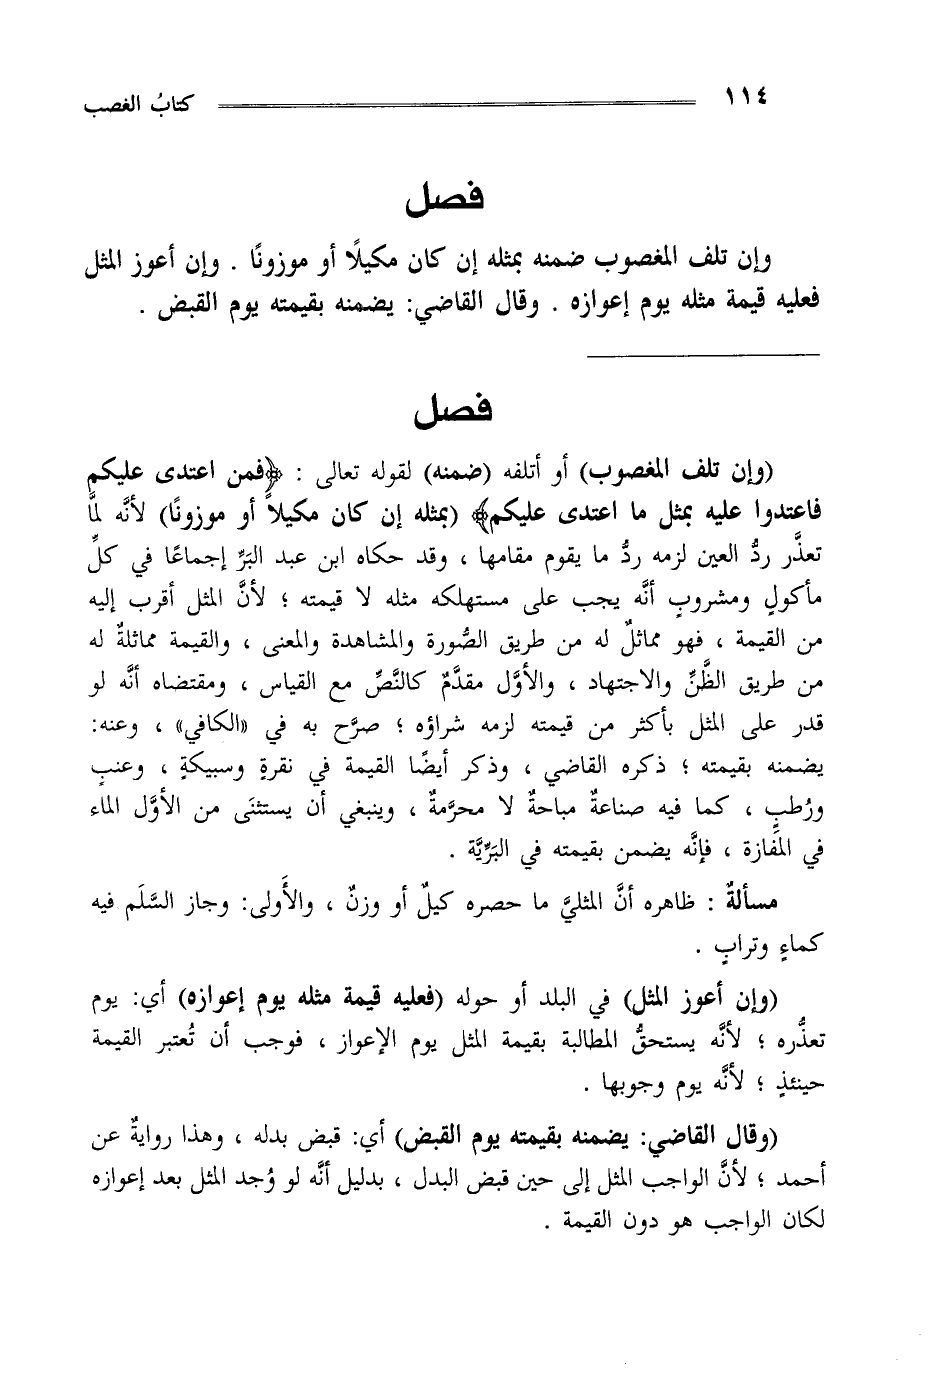 ١١٤
كتابُ الغصب
فصل
وإن تلف المغصوب ضمنه بمثله إن كان مكيلًا أو موزونًا . وإن أعوز المثل
فعليه قيمة مثله يوم إعوازه . وقال القاضي: يضمنه بقيمته يوم القبض .
فصل
(وإن تلف المغصوب) أو أتلفه (ضمنه) لقوله تعالى : ﴿فمن اعتدى عليكم
فاعتدوا عليه بمثل ما اعتدى عليكم﴾ (بمثله إن كان مكيلاً أو موزونًا) لأنَّه لمَّا
تعذَّر ردُّ العين لزمه ردُّ ما يقوم مقامها ، وقد حكاه ابن عبد البَرِّ إجماعًا في كلِّ
مأكولٍ ومشروبٍ أنَّه يجب على مستهلكه مثله لا قيمته ؛ لأنَّ المثل أقرب إليه
من القيمة ، فهو مماثلٌ له من طريق الصُّورة والمشاهدة والمعنى ، والقيمة مماثلةٌ له
من طريق الظَّنِّ والاجتهاد ، والأوَّل مقدَّمٌ كالنَّصِّ مع القياس ، ومقتضاه أنَّه لو
قدر على المثل بأكثر من قيمته لزمه شراؤه ؛ صرَّح به في «الكافي» ، وعنه:
يضمنه بقيمته ؛ ذكره القاضي ، وذكر أيضًا القيمة في نقرةٍ وسبيكةٍ ، وعنبٍ
ورُطبٍ ، كما فيه صناعةٌ مباحةٌ لا محرَّمةٌ ، وينبغي أن يستثنَى من الأوَّل الماء
في المفازة ، فإنَّه يضمن بقيمته في البَرِّيَّة .
مسألةٌ : ظاهره أنَّ المثليَّ ما حصره كيلٌ أو وزنٌ ، والأَولى: وجاز السَّلَم فيه
كماءٍ وترابٍ .
(وإن أعوز المثل) في البلد أو حوله (فعليه قيمة مثله يوم إعوازه) أي: يوم
تعذُّره ؛ لأنَّه يستحقُّ المطالبة بقيمة المثل يوم الإعواز ، فوجب أن تُعتبر القيمة
حينئذٍ ؛ لأنَّه يوم وجوبها .
(وقال القاضي: يضمنه بقيمته يوم القبض) أي: قبض بدله ، وهذا روايةٌ عن
أحمد ؛ لأنَّ الواجب المثل إلى حين قبض البدل ، بدليل أنَّه لو وُجد المثل بعد إعوازه
لكان الواجب هو دون القيمة .